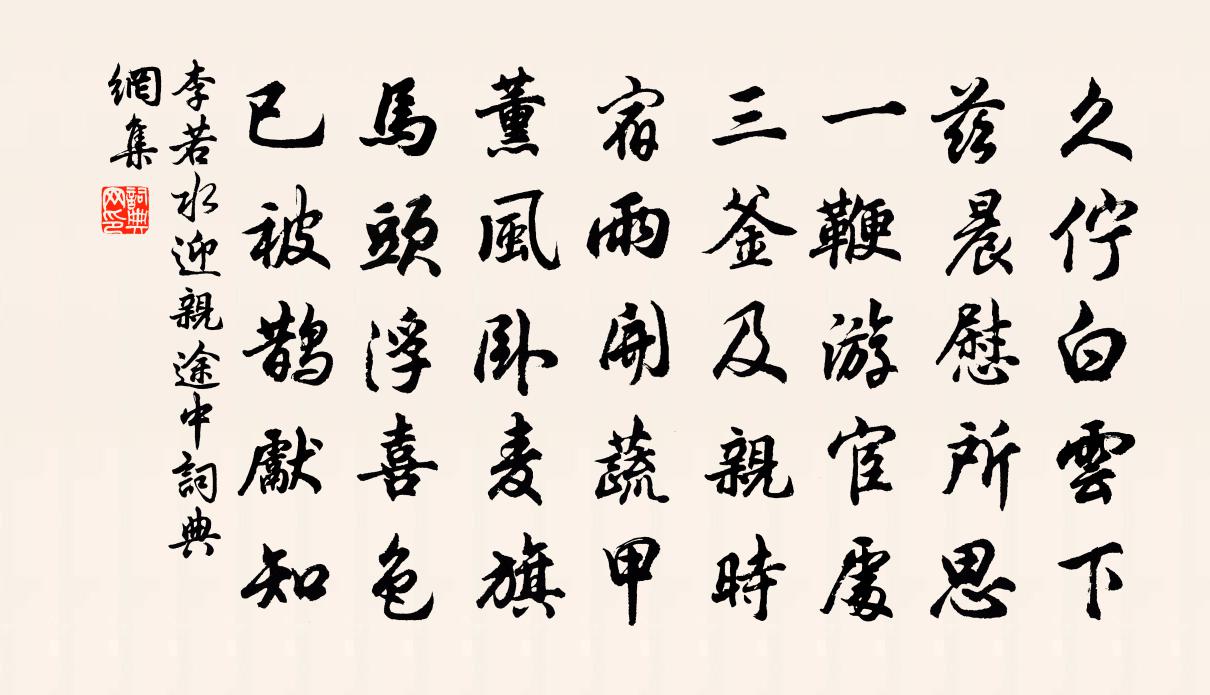 久佇白雲下
茲晨慰所思
一鞭游宦處
三釜及親時
宿雨開蔬甲
薰風臥麦旗
馬頭浮喜色
已被鵲獻知
李若水迎親途中詞典
網集
詞典網印